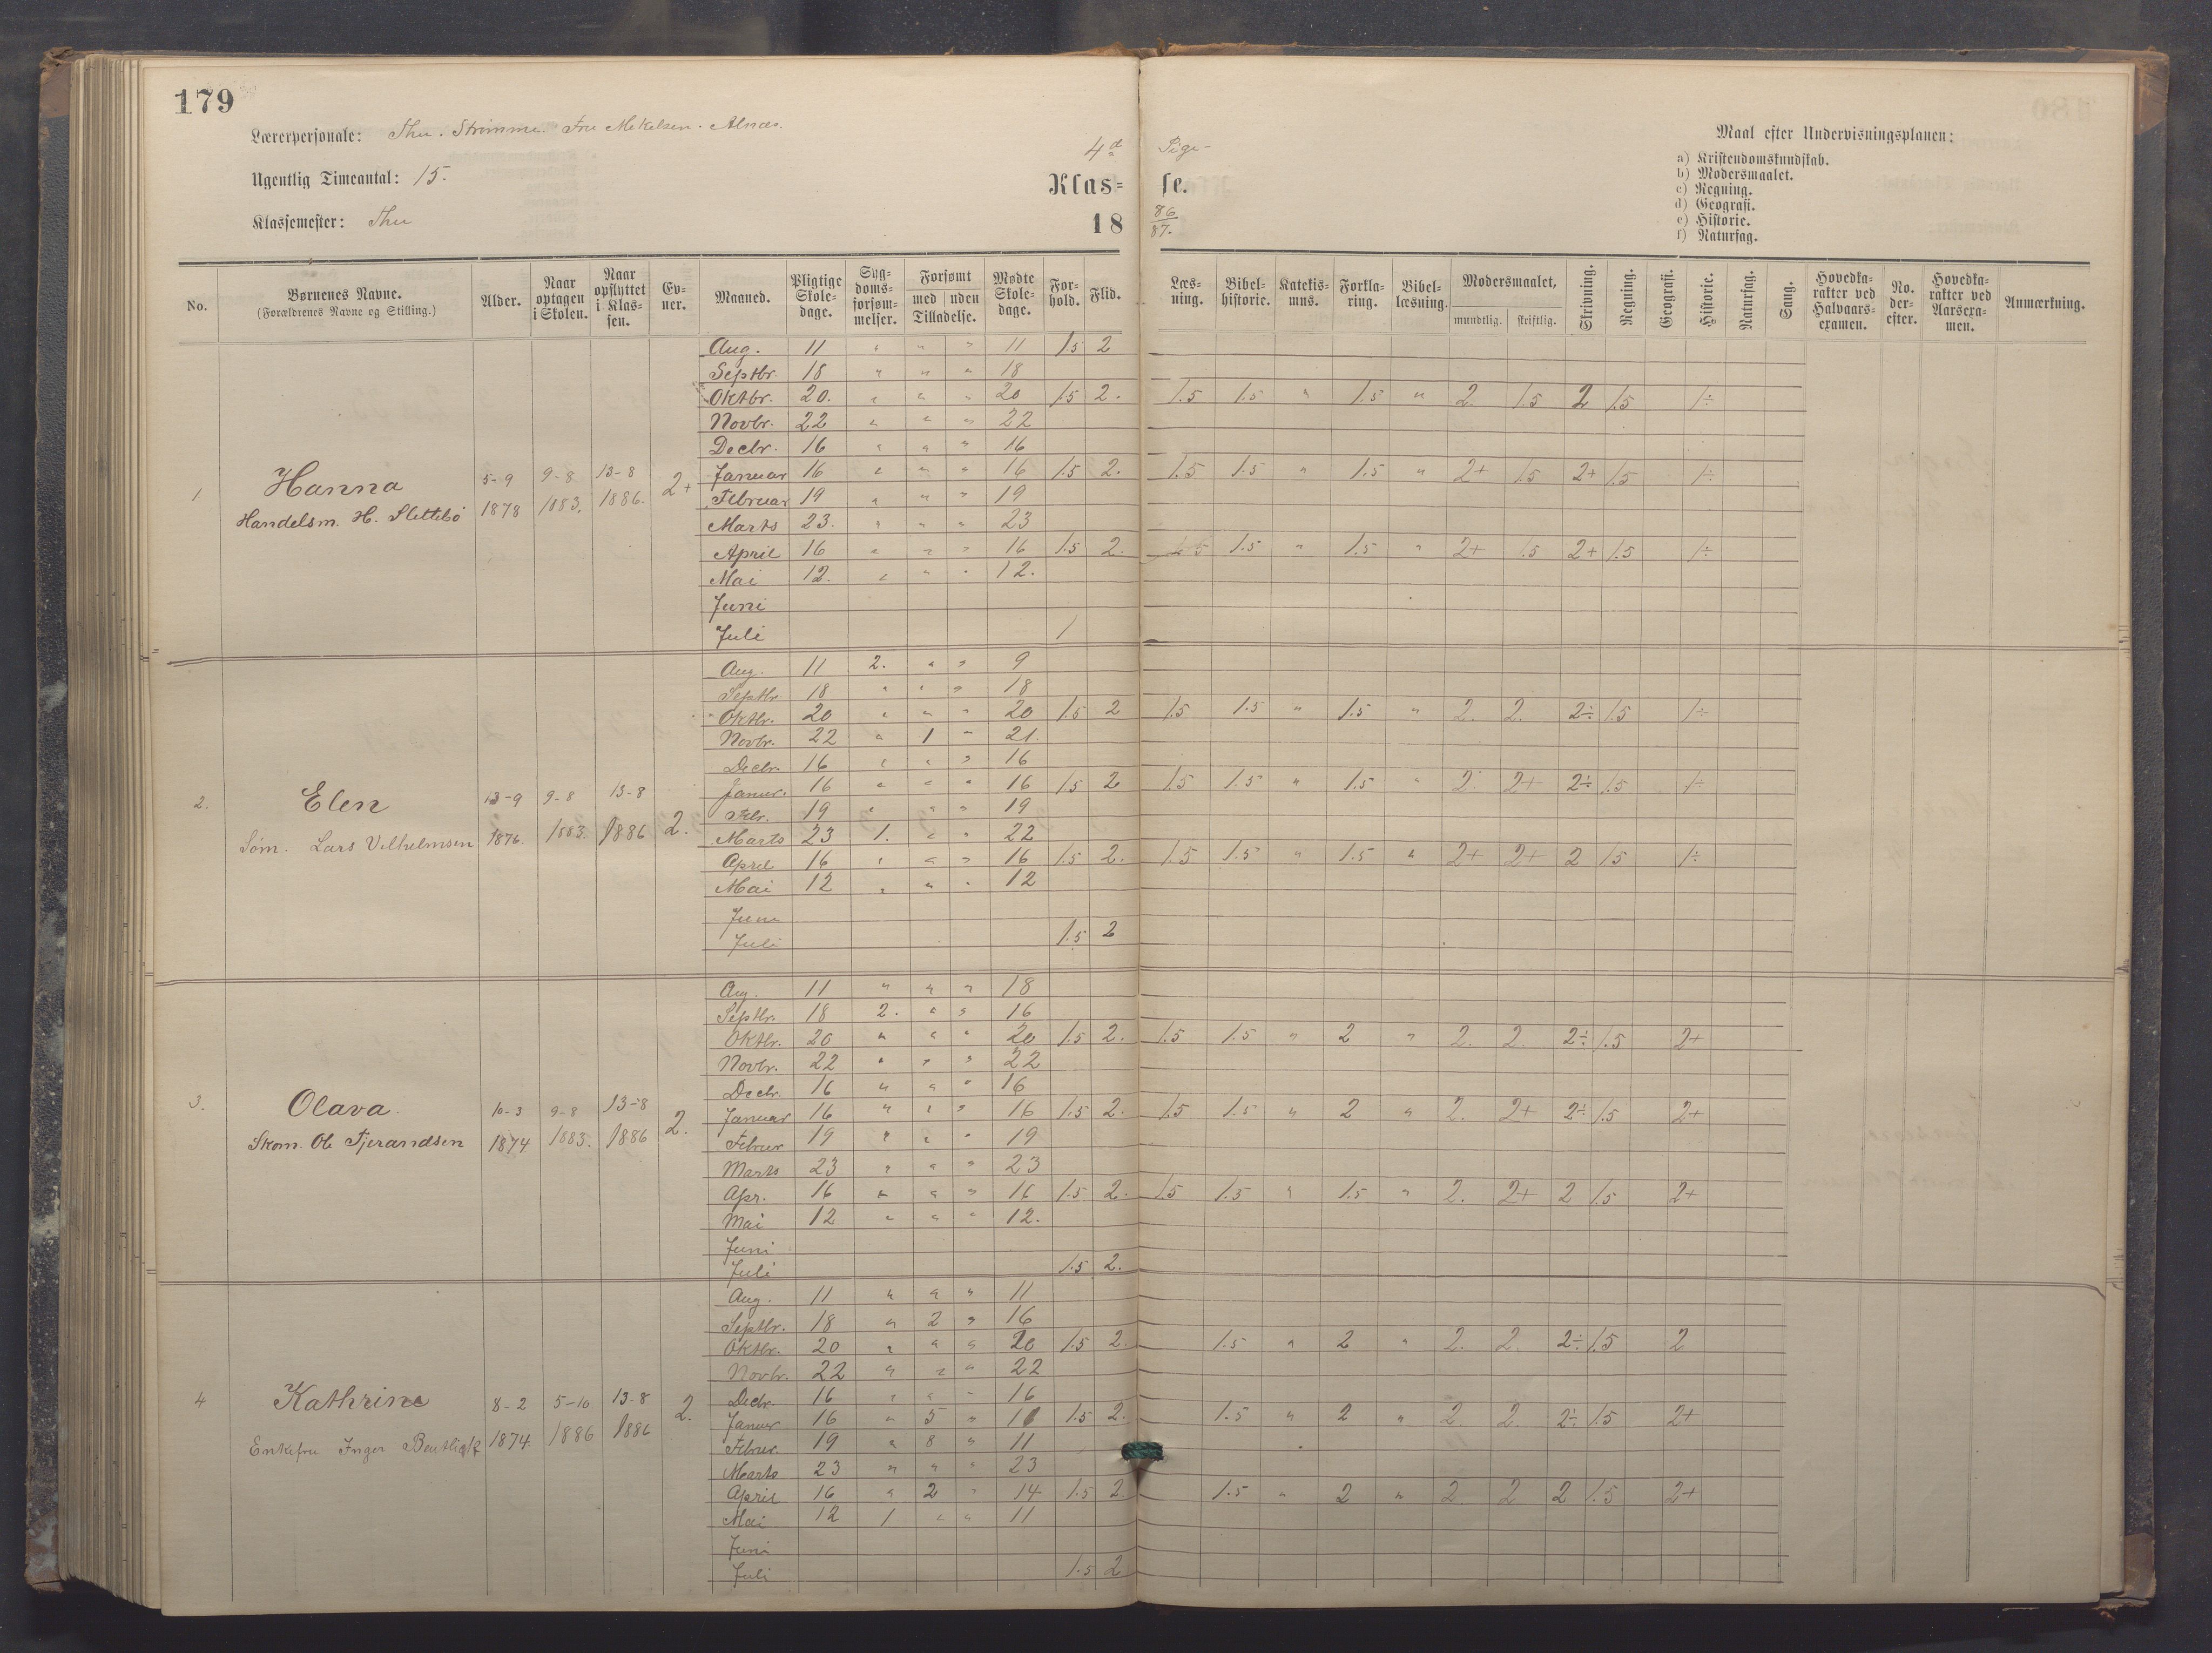 179
Lærerpersonale: Thu. Strømme. Fru Mekelsen. Alnæs.
Ugentlig Timeantal: 15.
Klassemester: Thu
4d Pige-
Klas= se.
18 86/87.
Maal efter Undervisningsplanen:
a) Kristendomskundskab.
b) Modersmaalet.
c) Regning.
d) Geografi.
e) Historie.
f) Naturfag.
No. | Børnenes Navne. (Forældrenes Navne og Stilling.) | Alder. | Naar optagen i Skolen. | Naar opflyttet i Klas=sen. | Ev=ner. | Maaned. | Pligtige Skole=dage. | Syg=doms=forsøm=melser. | Forsømt med Tilladelse. | Forsømt uden Tilladelse. | Mødte Skole=dage. | For=hold. | Flid. | Læs=ning. | Bibel=historie. | Katekis=mus. | Forkla=ring. | Bibel=læsning. | Modersmaalet, mundtlig. | skriftlig. | Skrivning. | Regning. | Geografi. | Historie. | Naturfag. | Sang. | Hovedka=rakter ved Halvaars=examen. | No. der=efter. | Hovedka=rakter ved Aarsexa=men. | Anmærkning.
1 Hanna
Handelsm. H. Slettebø
5-9 1878 | 9-8 1883. | 13-8 1886. | 2+
Aug. 11 " " " 11 1.5 2
Septbr. 18 " " " 18
Oktbr. 20. " " " 20 1.5 2. 1.5 1.5 " 1.5 " 2. 1.5 2 1.5 1÷
Novbr. 22 " " " 22
Decbr. 16 " " " 16
Januar 16 " " " 16 1.5 2. 1.5 1.5 " 1.5 " 2+ 1.5 2+ 1.5 1÷
Februar 19 " " " 19
Marts 23. " " " 23
April 16 " " " 16 1.5 2. 1.5 1.5 " 1.5 " 2+ 1.5 2+ 1.5 1÷
Mai 12. " " " 12.
Juni
Juli 1
2. Elen
Søm. Lars Vilhelmsen
13-9 1876. | 9-8 1883. | 13-8 1886 | 2.
Aug. 11 2. " " 9
Septbr 18 " " " 18
Oktbr. 20 " " " 20 1.5 2 1.5 1.5 " 1.5 " 2. 2. 2÷ 1.5 1÷
Novbr. 22 " 1 " 21.
Decbr. 16 " " " 16
Januar. 16 " " " 16 1.5 2 1.5 1.5 " 1.5 " 2. 2+ 2÷ 1.5 1÷
Febr. 19 " " " 19
Marts 23 1. " " 22
April 16 " " " 16 1.5 2. 1.5 1.5 " 1.5 " 2+ 2+ 2 1.5 1÷
Mai 12 " " " 12
Juni
Juli 1.5 2
3. Olava.
Skom. Ole Fjerandsen
10-3 1874 | 9-8 1883. | 13-8 1886 | 2.
Aug. 11 " " " 18
Septbr. 18 2. " " 16
Oktbr. 20 " " " 20 1.5 2. 1.5 1.5 " 2 " 2. 2. 2÷ 1.5 2+
Novbr. 22 " " " 22
Decbr. 16 " " " 16
Januar 16 " " " 16 1.5 2. 1.5 1.5 " 2 " 2. 2+ 2÷ 1.5 2+
Februar 19 " " " 19
Marts 23 " " " 23
Apr. 16 " " " 16 1.5 2. 1.5 1.5 " 1.5 " 2. 2+ 2 1.5 2+
Mai 12 " " " 12.
Juni
Juli 1.5 2.
4 Kathrine
Enkefru Inger
8-2 1874. | 5-10 1886 | 13-8 1886 | 2.
Aug. 11 " " " 11
Septbr. 18 " 2 " 16
Oktbr. 20 " " " 20 1.5 2. 1.5 " 2 " 2. 2. 2÷ 1.5 2
Novbr. 22 " " " 22
Decbr. 16 " " " 16
Januar 16 " 5 " 11 1.5 2. 1.5 " 2 " 2 2. 2÷ 1.5 2+
Februar. 19 " 8 " 11
Marts 23 " " " 23
April 16 " 2 " 14 1.5 2. 1.5 " 2 " 2. 2 2 1.5 2+
Mai 12 1 " " 11
Juni
Juli 1.5 2